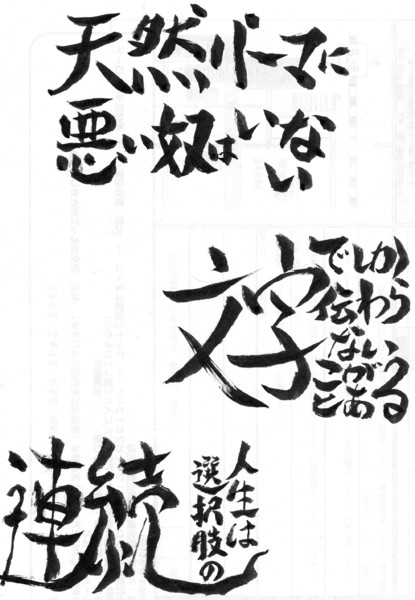 天然パーマに
悪い奴はいない
文字
でしか
伝わら
ない
ことがある
人生は
選択肢の
連続